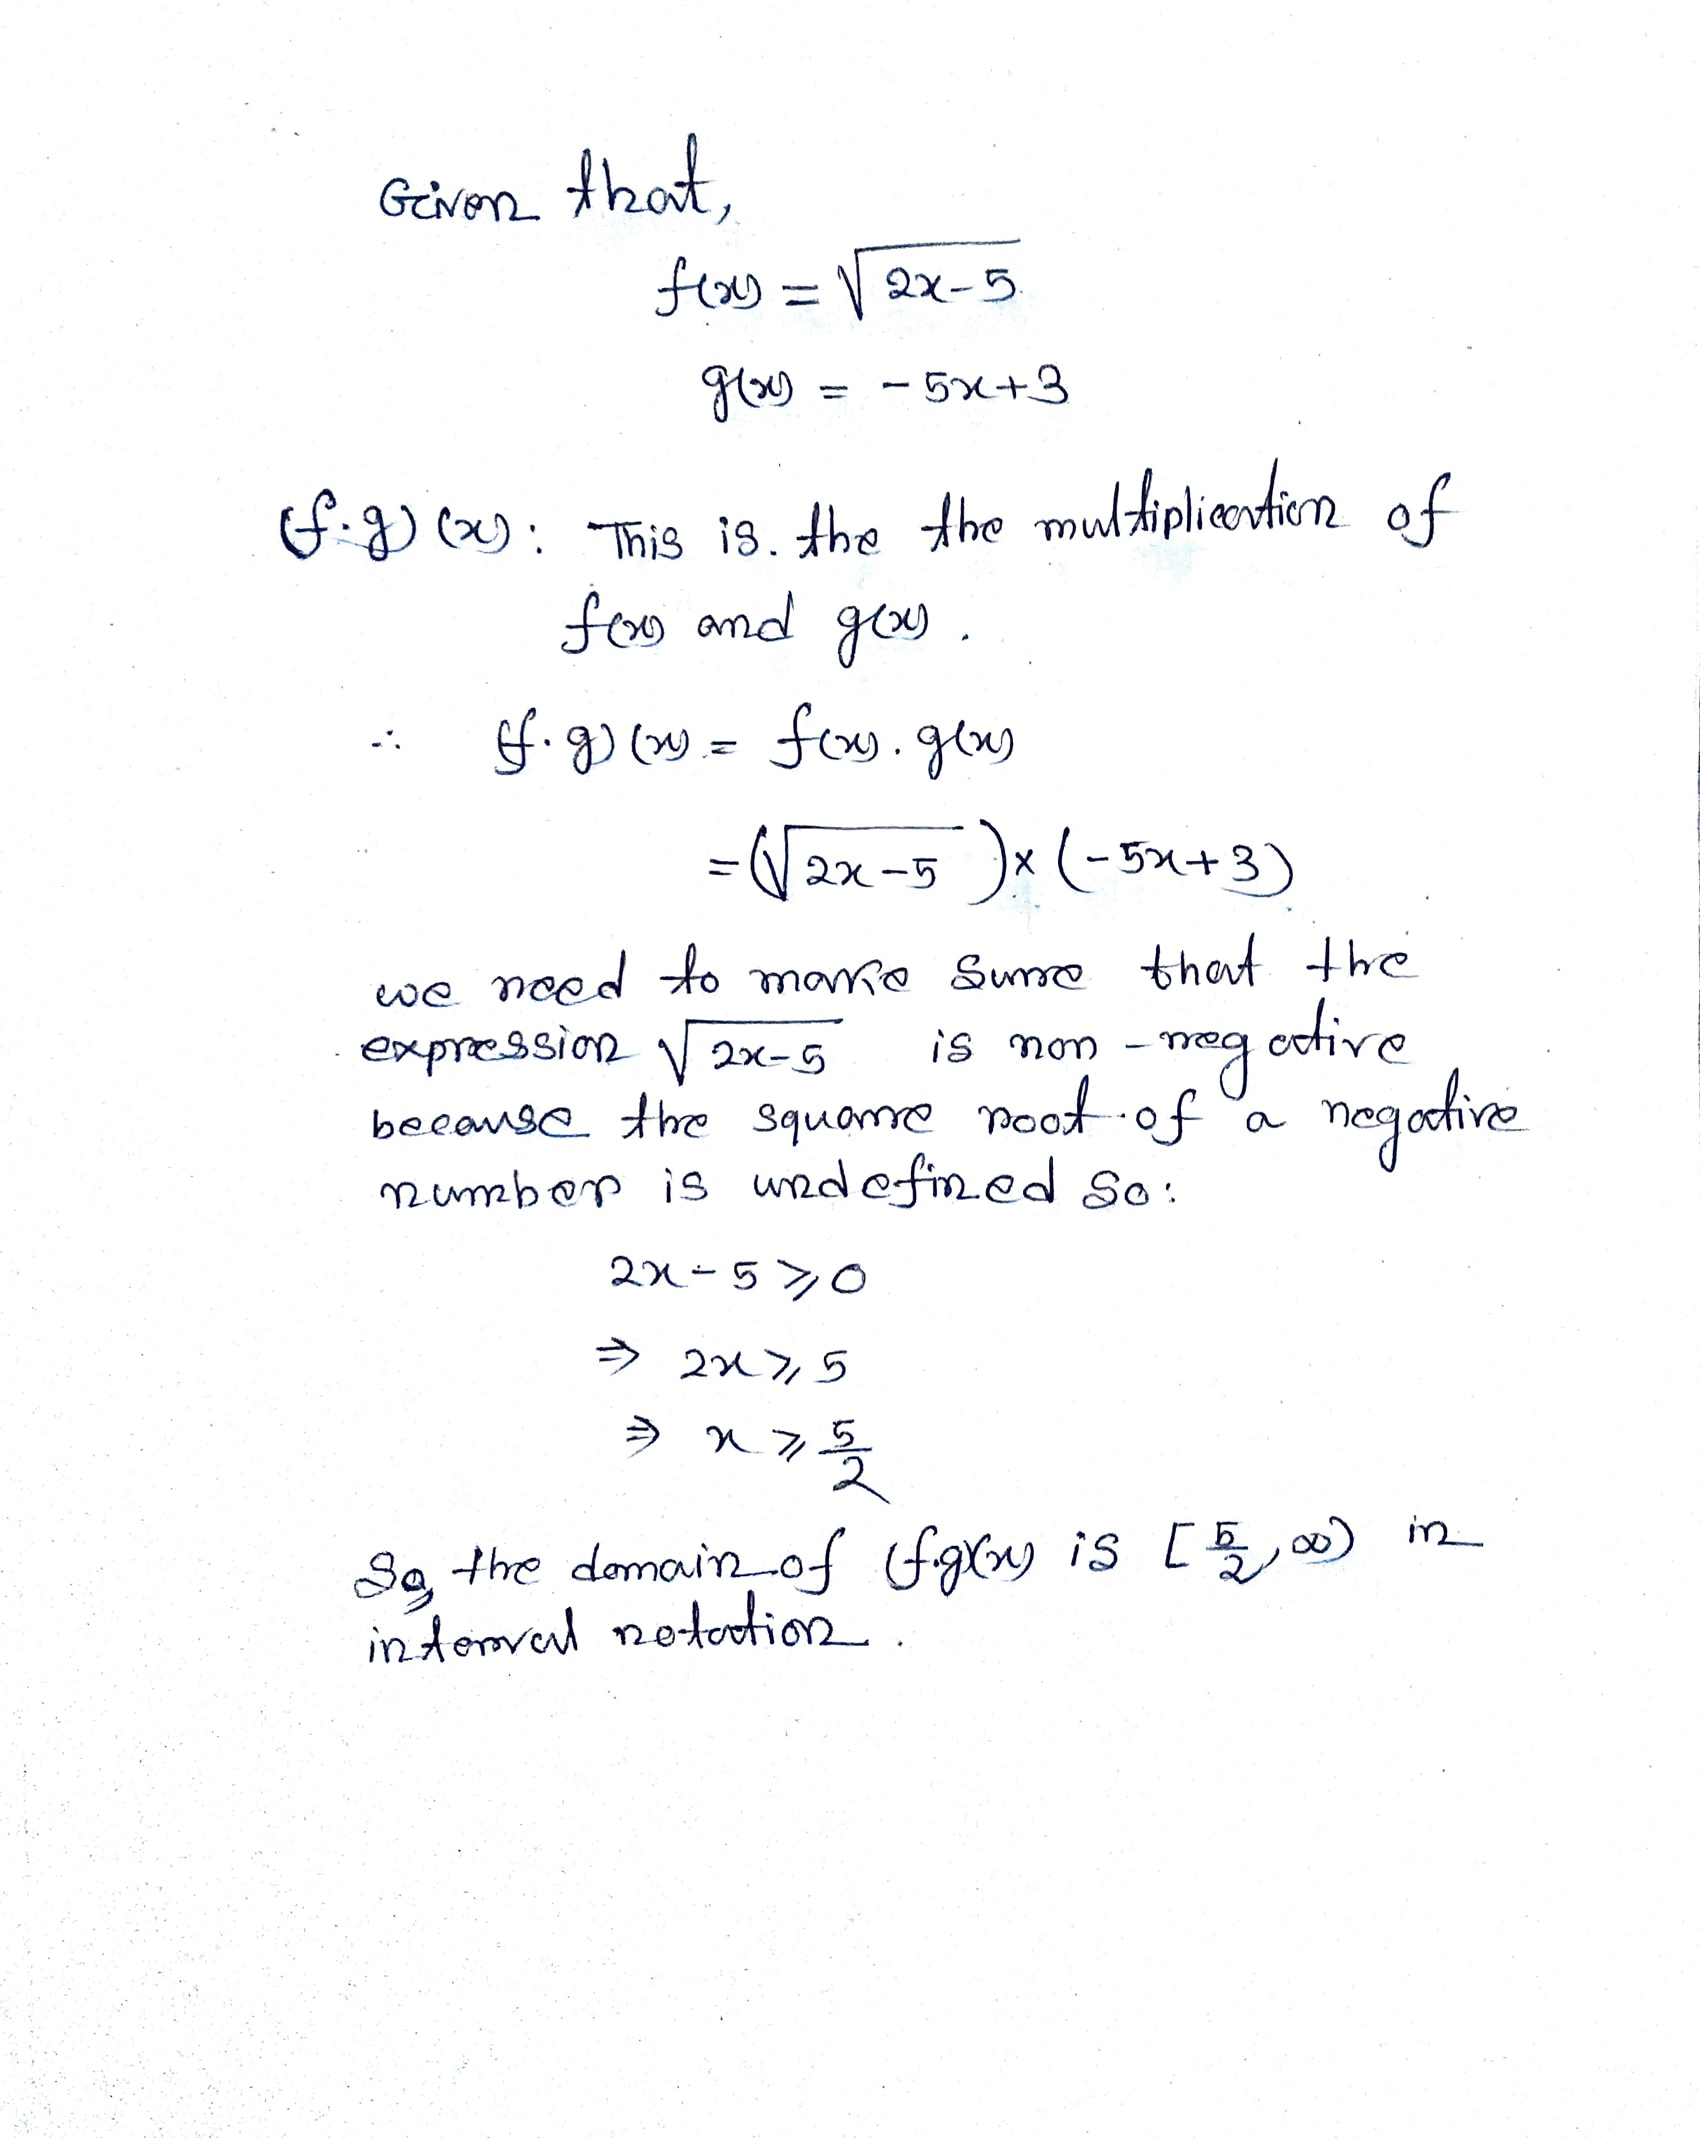 Given that,
f(x) = √2x-5
g(x) = -5x+3
(f.g) (x): This is. the the multiplication of
f(x) and g(x).
∴ (f.g) (x) = f(x). g(x)
= (√2x-5) × (-5x+3)
we need to make sure that the
expression √2x-5 is non-negative
because the square root of a negative
number is undefined so:
2x-5 ≥ 0
⇒ 2x ≥ 5
⇒ x ≥ 5/2
So, the domain of (f.g)(x) is [5/2, ∞) in
interval notation.